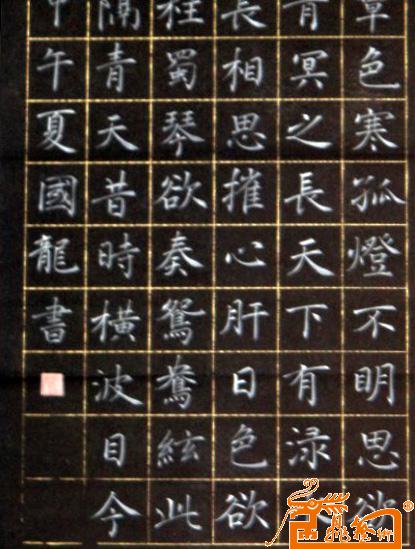 色寒孤燈不明思欲
青冥之長天下有渌
長相思摧心肝日色欲
柱蜀琴欲奏鴛鴦絃此
隔青天昔時橫波目今
甲午夏國龍書